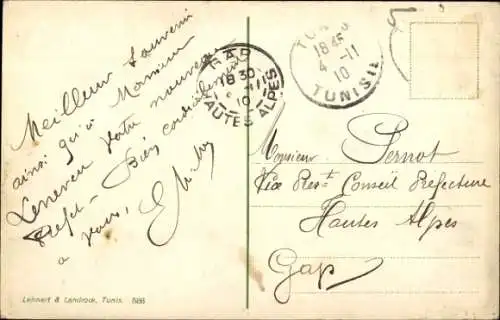 Meilleur souvenir
ainsi qu'à Monsieur
votre nouveau
Préfet - Bien cordialement
à vous,
GAP
18 30
10
HAUTES ALPES
TUNIS
18 45
4 -11
10
TUNISIE
Monsieur Pernot
Vice Prést Conseil Préfecture
Hautes Alpes
Gap
Lehnert & Landrock, Tunis.